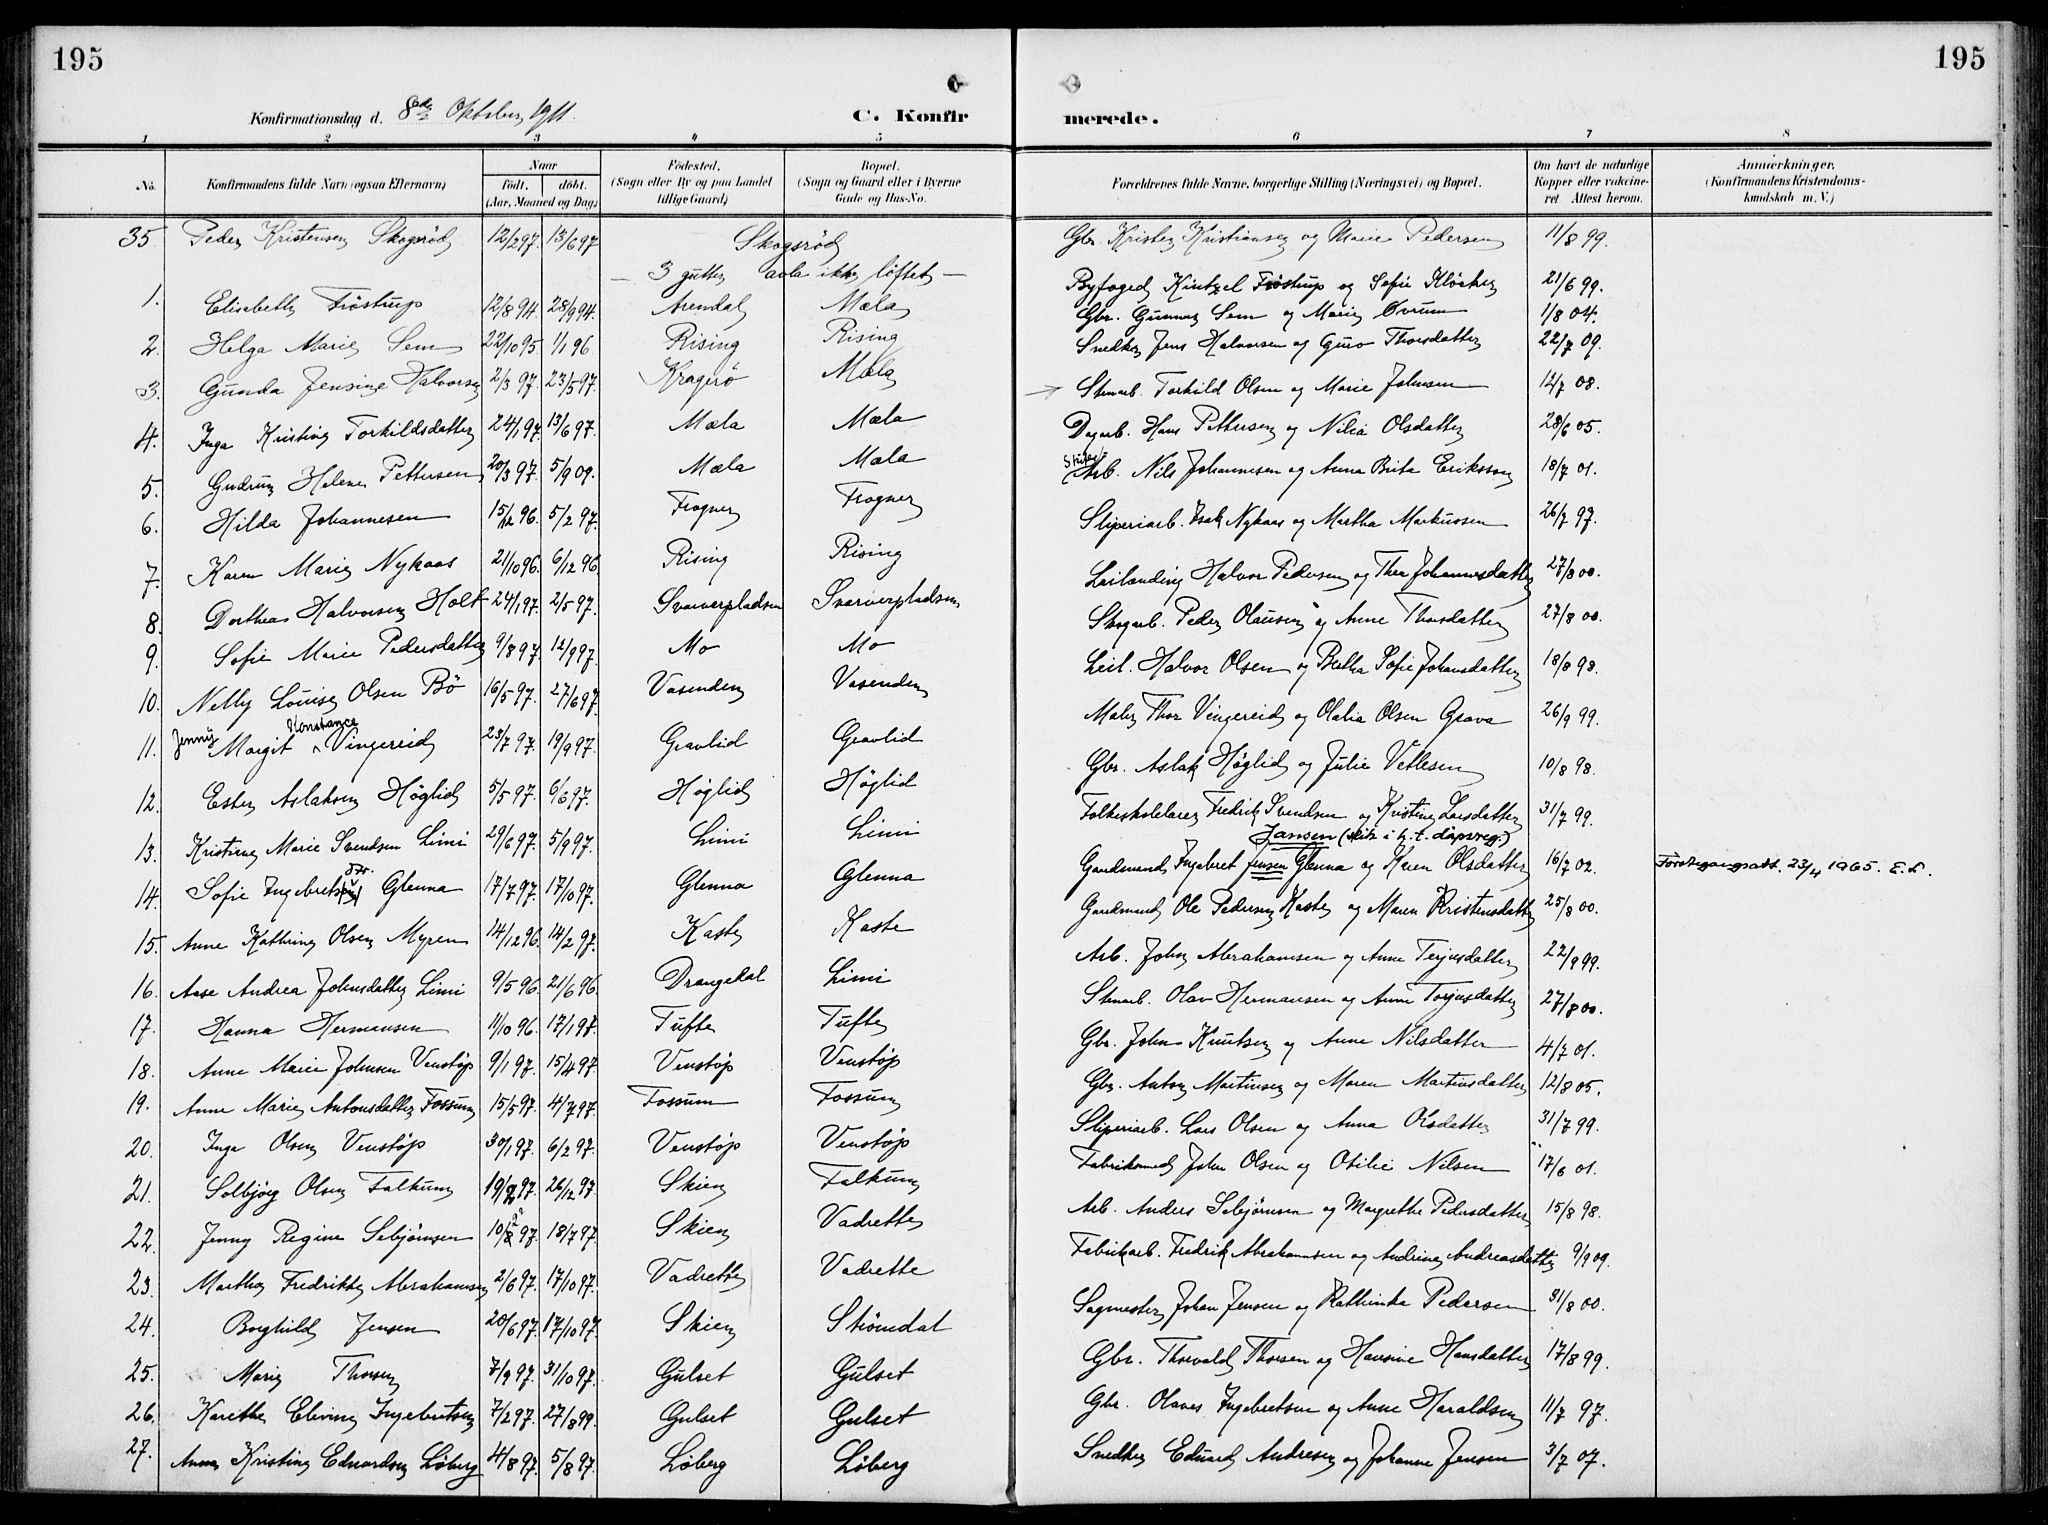 195
195
Konfirmationsdag d. 8de Oktober 1911.
C. Konfir
merede.
1 2 3 4 5 6 7 8
No.
Konfirmandens fulde Navn (ogsaa Efternavn)
Naar
födt. döbt.
(Aar, Maaned og Dag)
Födested.
(Sogn eller By og paa Landet
tillige Gaard)
Bopæl.
(Sogn og Gaard eller i Byerne
Gade og Hus-No.
Forældrenes fulde Navne, borgerlige Stilling (Næringsvei) og Bopæl.
Om havt de naturlige
Kopper eller vakcine-
ret Attest herom.
Anmærkninger.
(Konfirmandens Kristendoms-
kundskab m. V.)
35. Peder Kristensen Skogsröd 12/2 97. 13/6 97. Skogsröd Gbr. Kristen Kristiansen og Marie Pedersen 11/8 99.
— 3 gutter avla ikke löftet —
1. Elisabeth Fröstrup 12/8 94. 28/9 94. Arendal Mæla Byfoged Kintzel Fröstrup og Sofie Klöcker 21/6 99.
2. Helga Marie Sem 22/10 95. 1/1 96. Rising Rising Gbr. Gunnar Sem og Marie Övrum 1/8 04.
3. Gunda Jensine Halvorsen 2/3 97. 23/5 97. Kragerö Mæla Snedker Jens Halvorsen og Guro Thorsdatter 22/7 09.
4. Inga Kristine Torkildsdatter 24/1 97. 13/6 97. Mæla Mæla Stenarb. Torkild Olsen og Marie Johnsen 12/7 08.
5. Gudrun Helene Pettersen 20/3 97. 5/9 09. Mæla Mæla Dagarb. Hans Pettersen og Nilia Olsdatter 28/6 05.
6. Hilda Johannesen 15/12 96. 5/2 97. Frogner Frogner Arb. Nils Johannesen og Anna Brita Eriksson 18/7 01.
7. Karen Marie Nykaas 21/10 96. 6/12 96. Rising Rising Sliperiarb. Isak Nykaas og Martha Markussen 26/7 97.
8. Dorthea Halvorsen Holt 24/1 97. 2/5 97. Svarverpladsen Svarverpladsen Leilending Halvor Pedersen og Thea Johannesdatter 27/8 00.
9. Sofie Marie Pedersdatter 9/8 97. 12/9 97. Mo Mo Skogarb. Peder Olausen og Anne Thorsdatter 27/8 00.
10. Nelly Louise Olsen Bö 16/5 97. 27/6 97. Vasenden Vasenden Leil. Halvor Olsen og Berthe Sofie Johansdatter 18/8 98.
11. Jenny Margit Konstance Vingereid 23/7 97. 19/9 97. Gravlid Gravlid Maler Thor Vingereid og Olalia Olsen Grava 26/9 99.
12. Ester Aslaksen Höglid 5/5 97. 6/6 97. Höglid Höglid Gbr. Aslak Höglid og Julie Vetlesen 10/8 98.
13. Kristine Marie Svendsen Limi 29/6 97. 5/9 97. Limi Limi Folkeskolelærer Fredrik Svendsen og Kristine Larsdatter 31/7 99.
14. Sofie Ingebretsen Glenna 17/7 97. 17/10 97. Glenna Glenna Gaardmand Ingebret Jensen Glenna og Karen Olsdatter 16/7 02.
15. Anne Kathrine Olsen Myren 14/12 96. 14/2 97. Kaste Kaste Gaardmand Ole Pedersen Kaste og Maren Kristensdatter 25/8 00.
16. Aase Andrea Johnsdatter Limi 9/5 96. 21/6 96. Drangedal Limi Arb. John Abrahamsen og Anne Terjesdatter 22/9 99.
17. Hanna Hermansen 1/10 96. 17/1 97. Tufte Tufte Stenarb. Olav Hermansen og Anne Torjusdatter 27/8 00.
18. Anne Marie Johnsen Venstöp 9/1 97. 15/4 97. Venstöp Venstöp Gbr. John Knutsen og Anne Nilsdatter 4/7 01.
19. Anne Marie Antonsdatter Fossum 15/5 97. 4/7 97. Fossum Fossum Gbr. Anton Martinsen og Maren Martinsdatter 12/8 05.
20. Inga Olsen Venstöp 30/1 97. 6/2 97. Venstöp Venstöp Sliperiarb. Lars Olsen og Anna Olsdatter 31/7 99.
21. Solbjörg Olsen Falkum 19/9 97. 26/12 97. Skien Falkum Fabrikmed. John Olsen og Otilie Nilsen 17/6 01.
22. Jenny Regine Sebjörnsen 10/2 97. 18/7 97. Skien Vadrette Arb. Anders Sebjörnsen og Margrethe Pedersdatter 15/8 98.
23. Martha Fredrikke Abrahamsen 2/6 97. 17/10 97. Vadrette Vadrette Fabrikarb. Fredrik Abrahamsen og Andrine Andreasdatter 9/9 09.
24. Borghild Jensen 20/6 97. 17/10 97. Skien Strömdal Sagmester Johan Jensen og Kathinka Pedersen 31/8 00.
25. Marie Thorsen 7/9 97. 31/10 97. Gulset Gulset Gbr. Thorvald Thorsen og Hansine Hansdatter 17/8 99.
26. Karethe Elevine Ingebretsen 7/2 97. 27/8 99. Gulset Gulset Gbr. Olaves Ingebretsen og Anne Haraldsen 11/7 97.
27. Anna Kristine Edvardsen Löberg 4/8 97. 5/8 97. Löberg Löberg Snedker Edvard Andresen og Johanne Jensen 3/7 07.
Jansen (
Förstegangsatt. 23/4 1965. E. L.